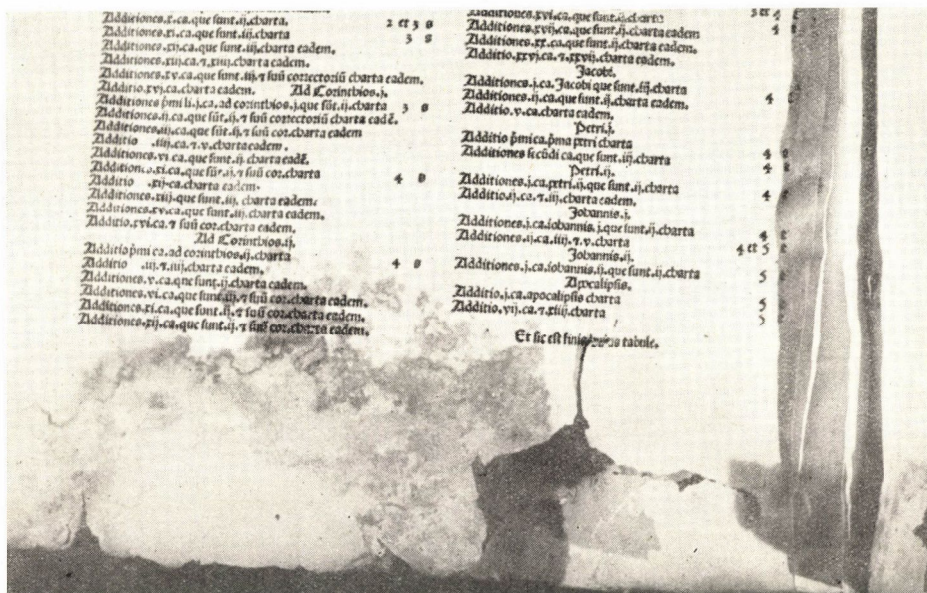 Additiones.x.ca.que sunt.ij.charta. 2 et 3 s
Additiones.xi.ca.que sunt.ij.charta 3 s
Additiones.xij.ca.que sunt.iij.charta eadem.
Additiones.xiij.ca.⁊.xiiij.charta.
Additiones.xv.ca.que sunt.iij.⁊ suū correctoriū charta eadem.
Additio.xvj.ca.charta eadem. Ad Corinthios.j.
Additiones p̄mi li.j.ca.ad corinthios.j.que sūt.ij.charta 3 s
Additiones.ij.ca.que sūt.ij.⁊ suū correctoriū charta eadē.
Additiones.iij.ca.que sūt.ij.⁊ suū cor.charta eadem
Additio .iiij.ca.⁊.v.charta eadem.
Additiones.vi.ca.que sunt.ij.charta eadē.
Additiones.xi.ca.que sūt.ij.⁊ suū cor.charta 4 s
Additio .xij.ca.charta eadem.
Additiones.xiij.que sunt.iij.charta eadem.
Additiones.xv.ca.que sunt.iij.charta eadem.
Additio.xvi.ca.⁊ suū cor.charta eadem.
Ad Corinthios.ij.
Additio p̄mi ca.ad corinthios.ij.charta
Additio .iij.⁊.iiij.charta eadem. 4 s
Additiones.v.ca.que sunt.ij.charta eadem.
Additiones.vi.ca.que sunt.iij.⁊ suū cor.charta eadem.
Additiones.xi.ca.que sunt.ij.⁊ suū cor.charta eadem.
Additiones.xij.ca.que sunt.ij.⁊ suū cor.charta eadem.
Additiones.xvi.ca.que sunt.ij.charta 3 et 4 t
Additiones.xvij.ca.que sunt.ij.charta 4 t
Additiones.xx.ca.que sunt.ij.charta eadem.
Additio.xxvj.ca.⁊.xxvij.charta eadem.
Jacobi.
Additiones.j.ca.Jacobi que sunt.iij.charta
Additiones.ij.ca.que sunt.ij.charta eadem. 4 t
Additio.v.ca.charta eadem.
Petri.j.
Additio p̄mi ca.p̄ma petri charta
Additiones secūdi ca.que sunt.iij.charta 4 t
Petri.ij. 4
Additiones.j.ca.petri.ij.que sunt.ij.charta
Additio.ij.ca.⁊.iij.charta eadem. 4 t
Johannis.j.
Additiones.j.ca.iohannis.j.que sunt.ij.charta 4 t
Additiones.ij.ca.iij.⁊.v.charta 4 et 5 t
Johannis.ij.
Additiones.j.ca.iohannis.ij.que sunt.ij.charta 5 t
Apocalipsis.
Additio.j.ca.apocalipsis charta 5
Additio.vij.ca.⁊.xiij.charta 5
Et sic est finis tabule.